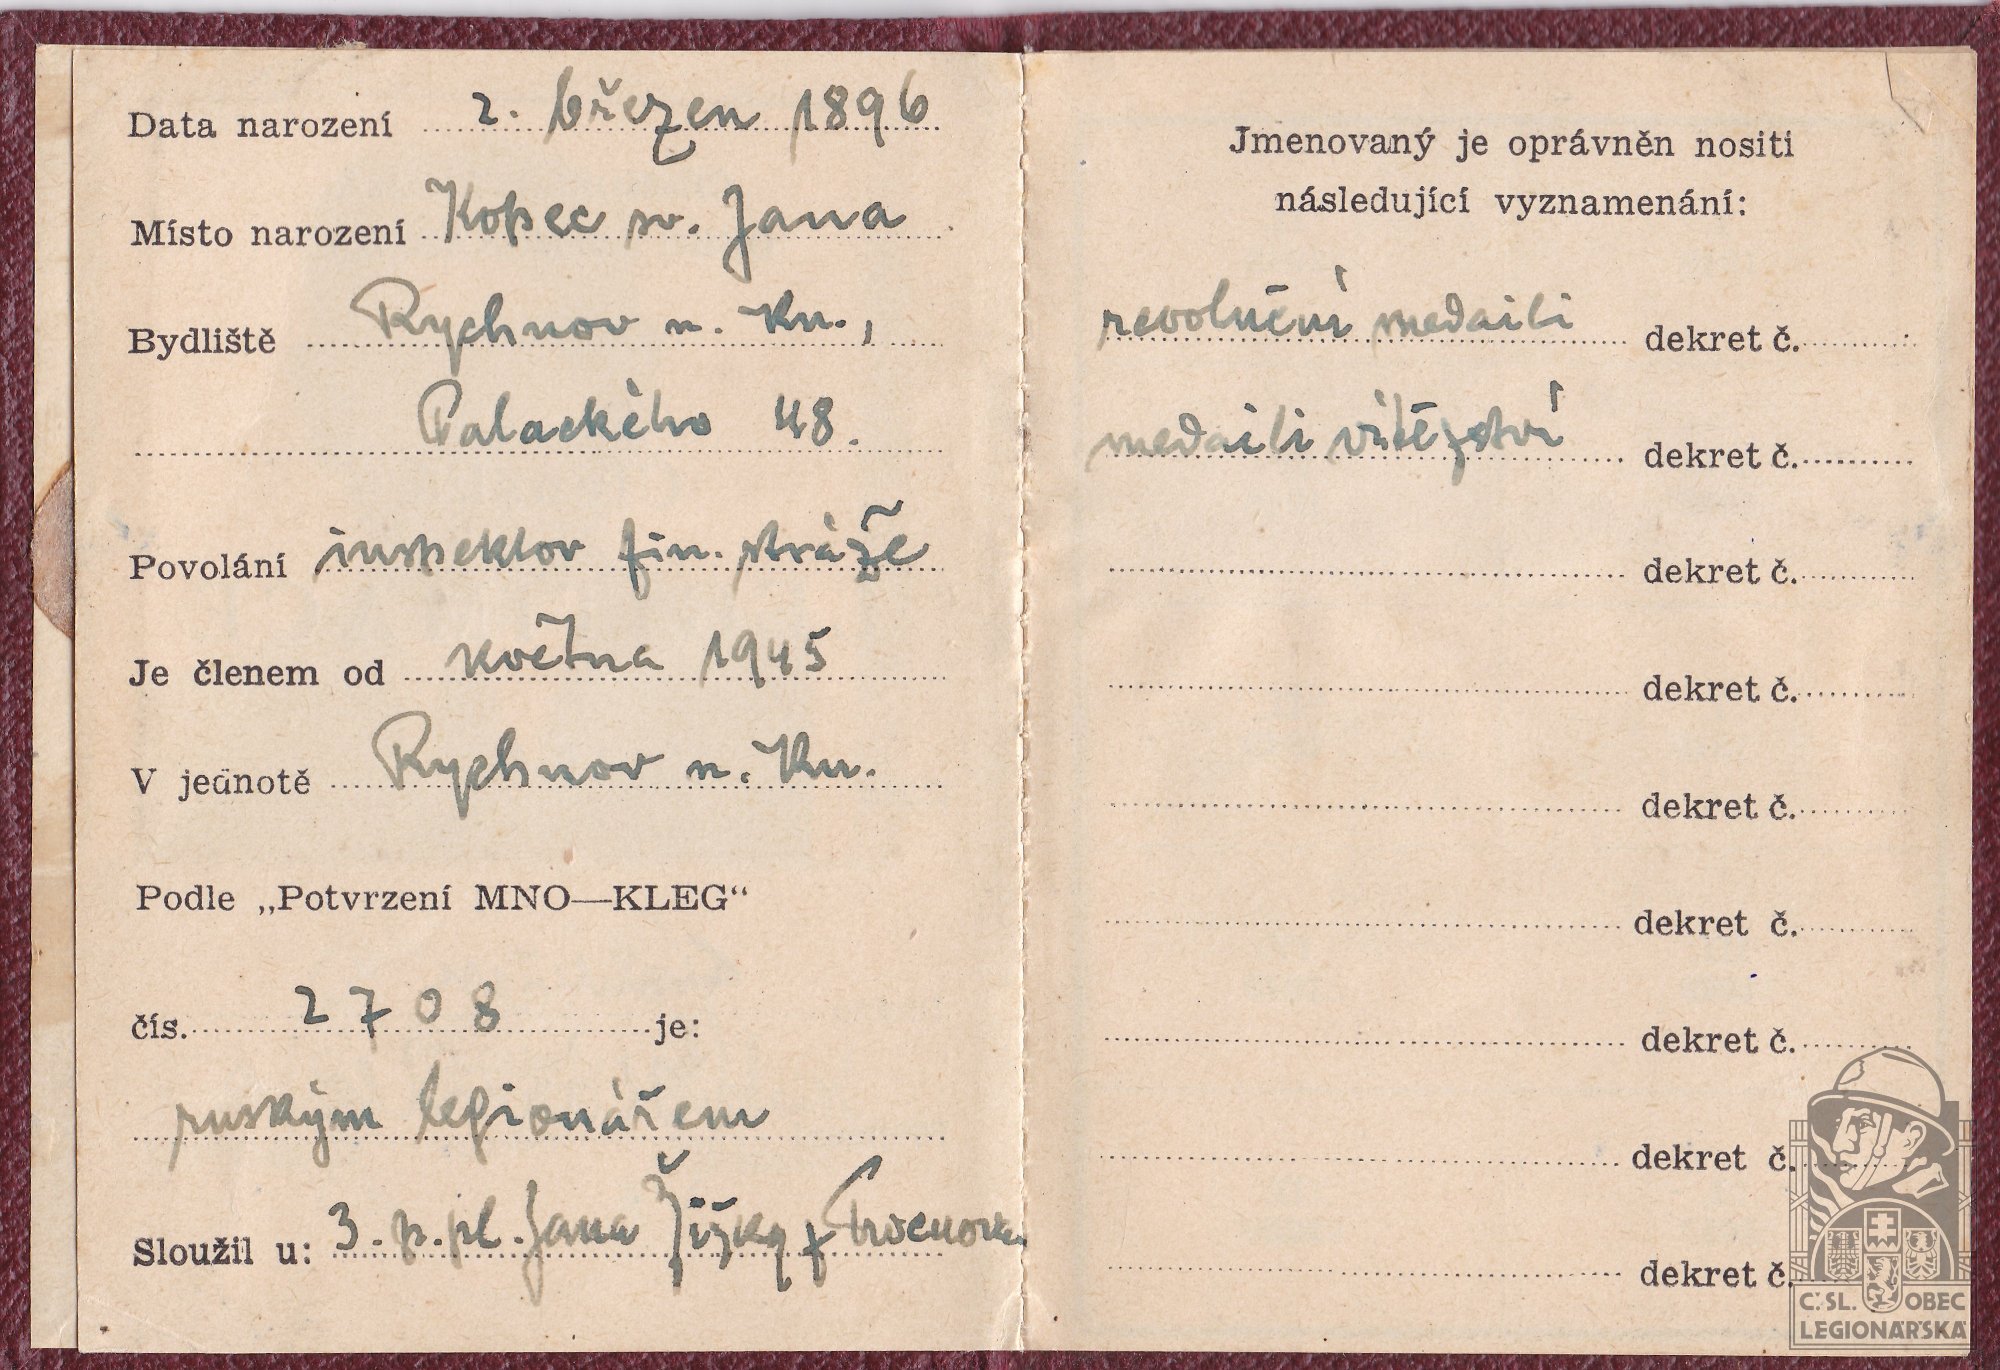 Data narození 2. březen 1896
Místo narození Kopec sv. Jana
Bydliště Rychnov n. Kn.,
Palackého 48.
Povolání inspektor fin. stráže
Je členem od května 1945
V jednotě Rychnov n. Kn.
Podle „Potvrzení MNO—KLEG“
čís. 2708 je:
ruským legionářem
Sloužil u: 3. p. pl. Jana Žižky z Trocnova
Jmenovaný je oprávněn nositi
následující vyznamenání:
revoluční medaili dekret č.
medaili vítězství dekret č.
dekret č.
dekret č.
dekret č.
dekret č.
dekret č.
dekret č.
dekret č.
Č. SL. OBEC
LEGIONÁŘSKÁ